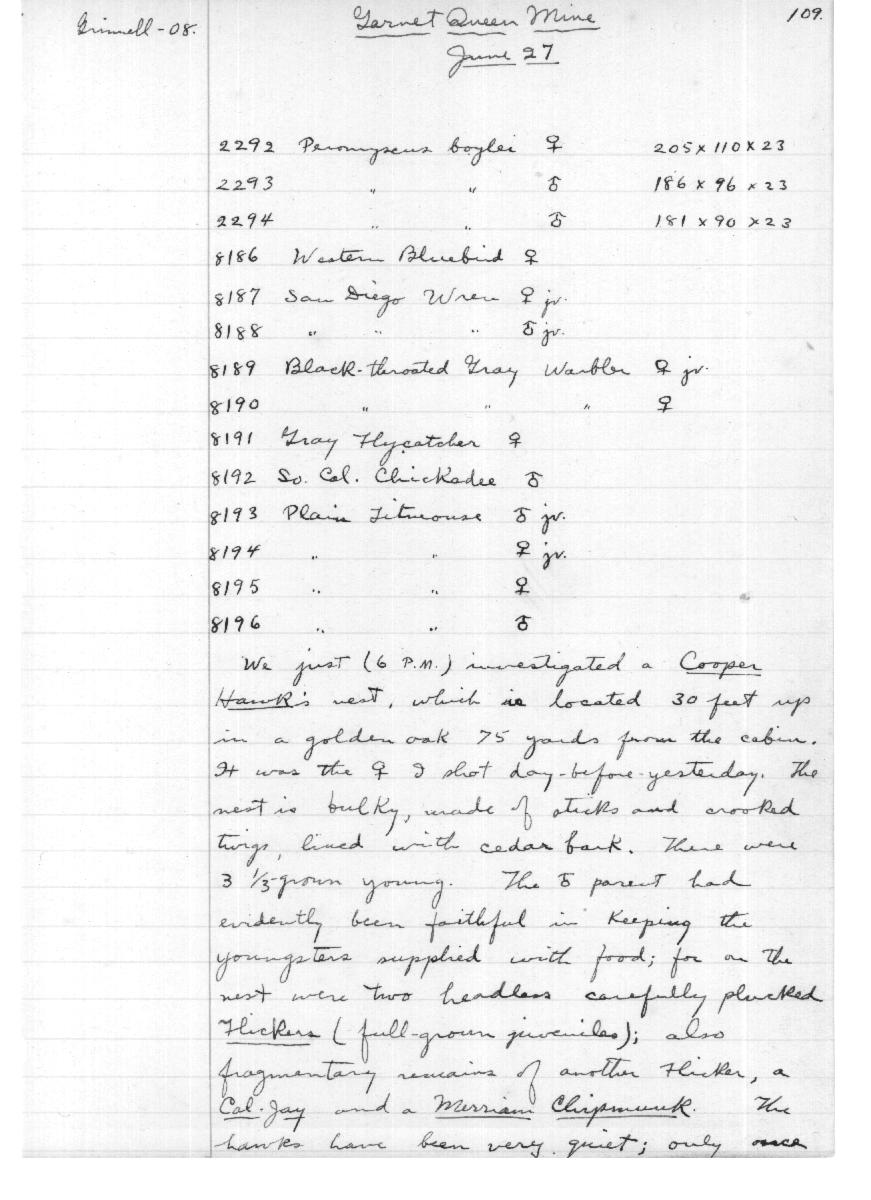 Grinnell - 08.
Garnet Queen Mine
109.
June 27
2292 Peromyscus boylei ♀ 205 x 110 x 23
2293 " " ♂ 186 x 96 x 23
2294 " " ♂ 181 x 90 x 23
8186 Western Bluebird ♀
8187 San Diego Wren ♀ jv.
8188 " " " ♂ jv.
8189 Black-throated Gray Warbler ♀ jv.
8190 " " " ♀
8191 Gray Flycatcher ♀
8192 So. Cal. Chickadee ♂
8193 Plain Titmouse ♂ jv.
8194 " " ♀ jv.
8195 " " ♀
8196 " " ♂
We just (6 P.M.) investigated a Cooper
Hawk's nest, which is located 30 feet up
in a golden oak 75 yards from the cabin.
It was the ♀ I shot day-before-yesterday. The
nest is bulky, made of sticks and crooked
twigs, lined with cedar bark. There were
3 1/3-grown young. The ♂ parent had
evidently been faithful in keeping the
youngsters supplied with food; for on the
nest were two headless carefully plucked
Flickers (full-grown juveniles); also
fragmentary remains of another Flicker, a
Cal. Jay and a Merriam Chipmunk. The
hawks have been very quiet; only once